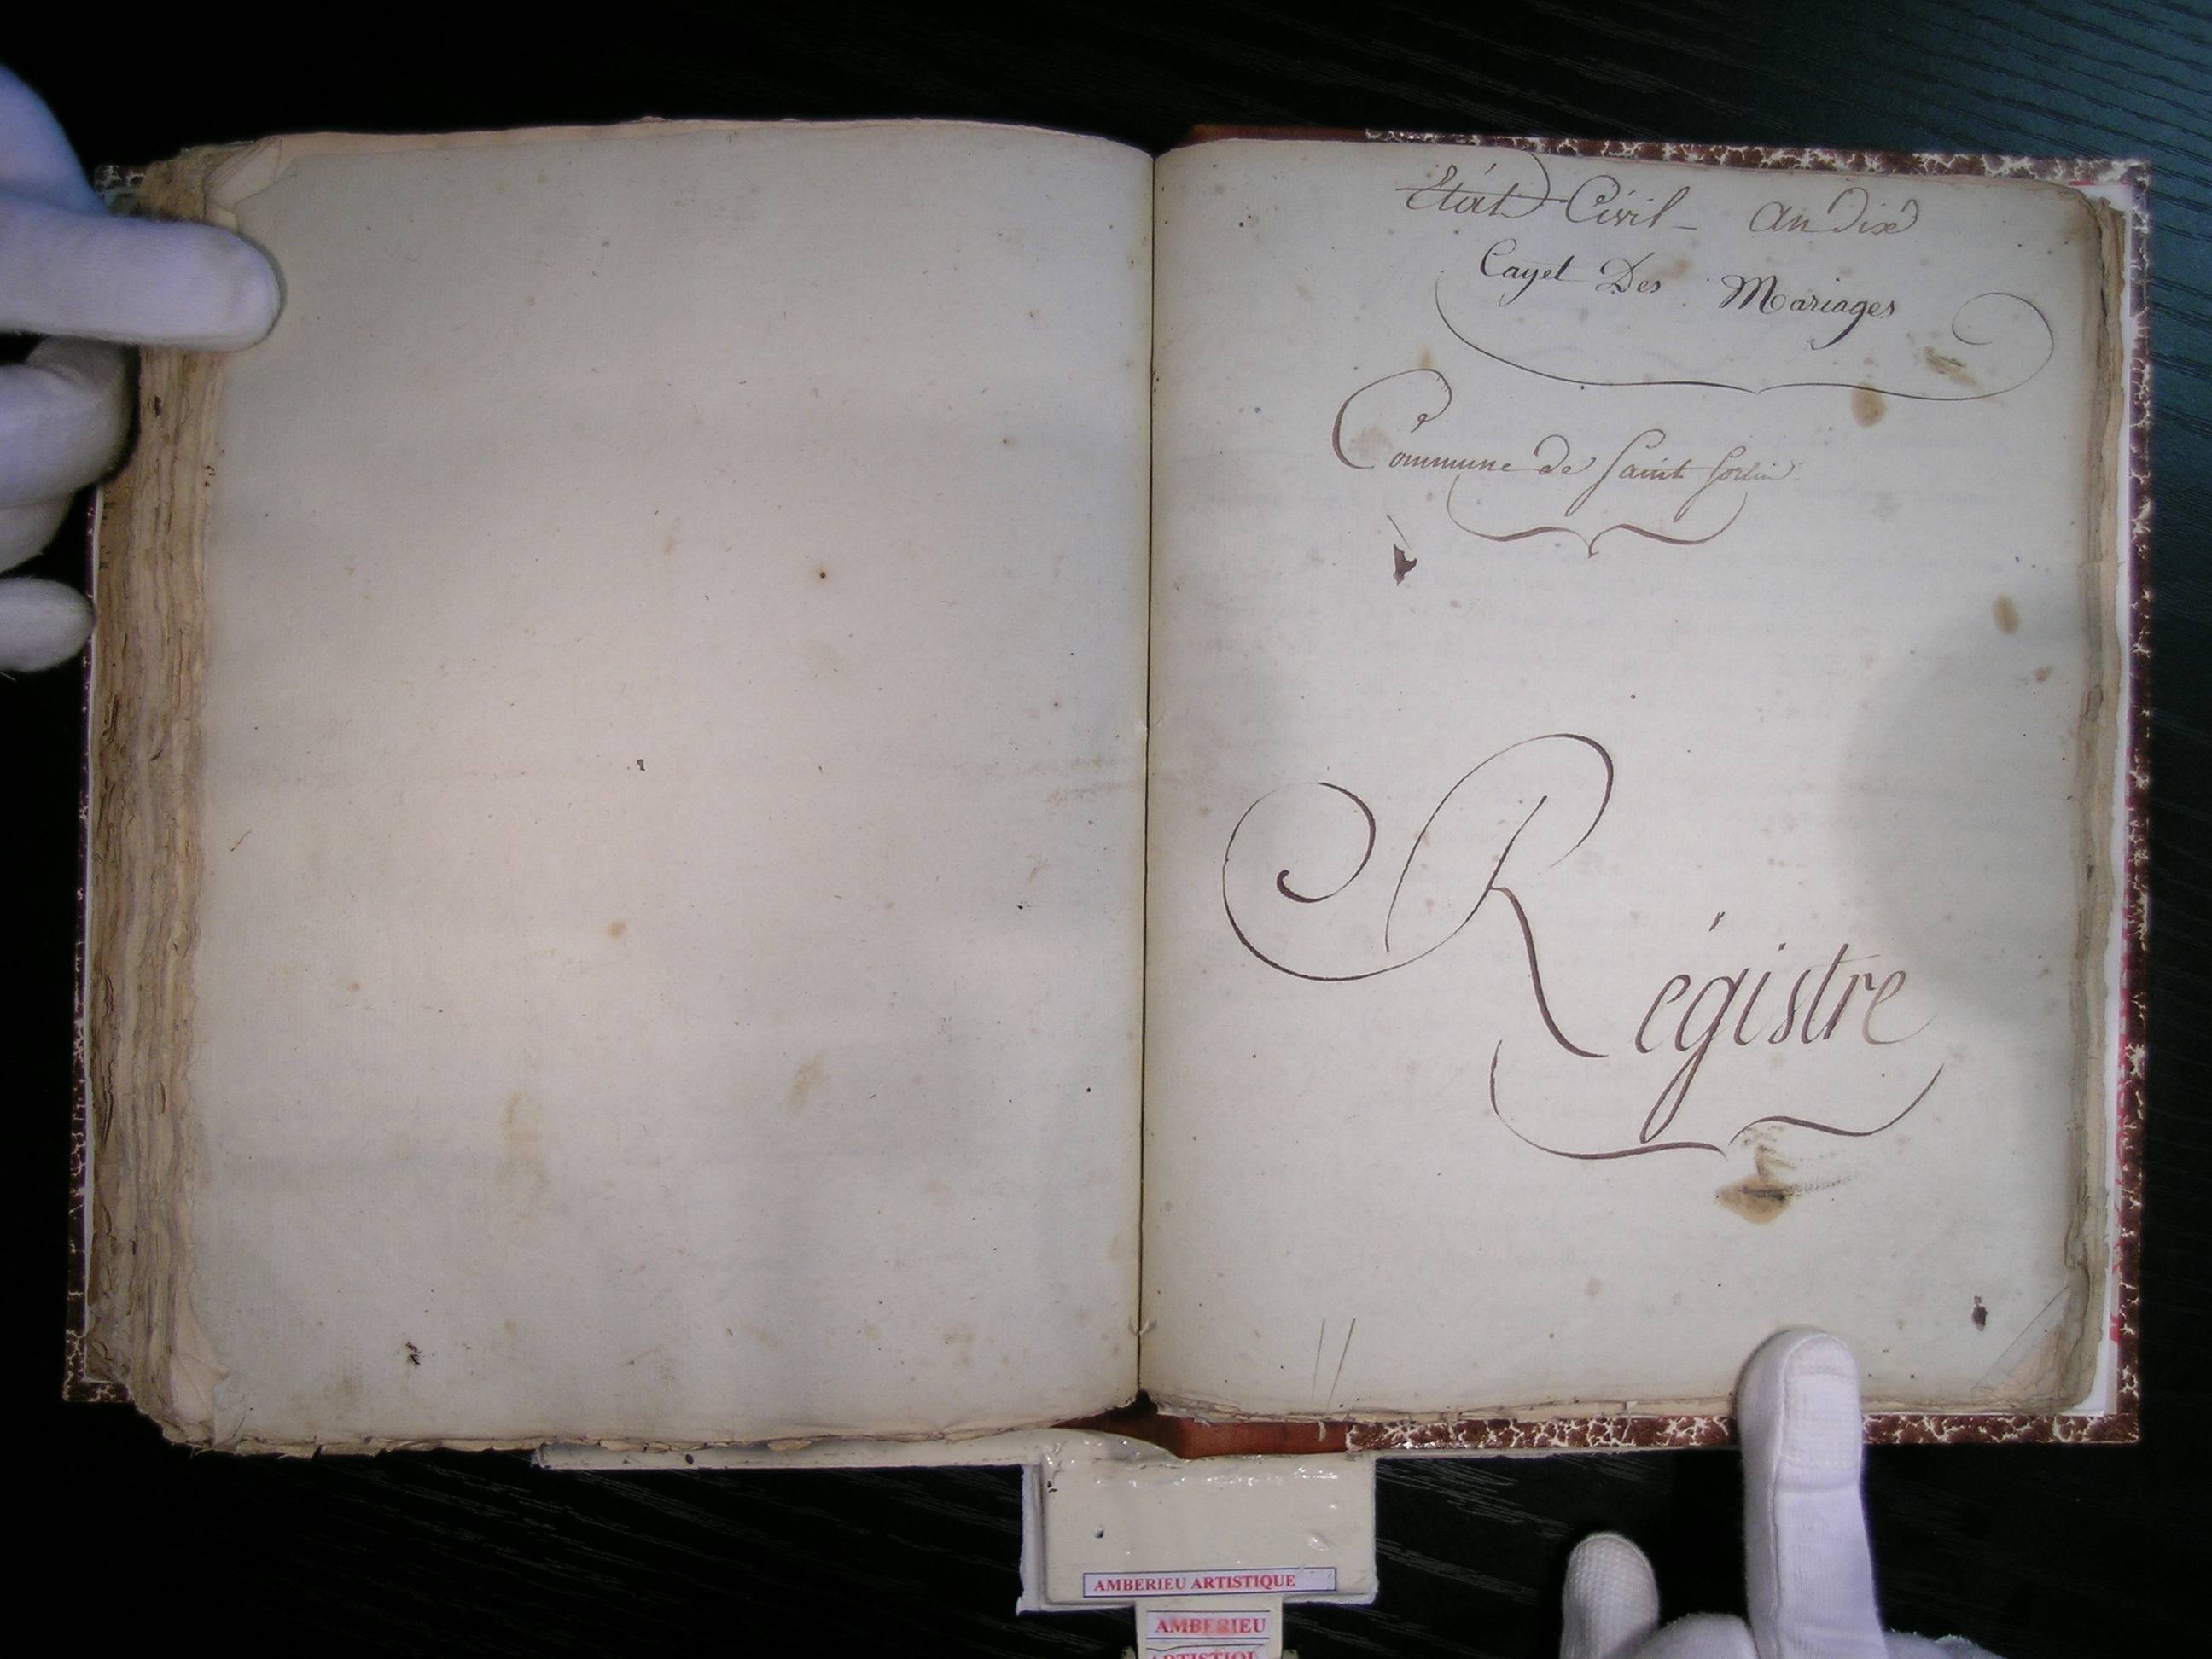 Etat Civil - an dix
Cayet Des Mariages
Commune de Saint Sorlin
Régistre
AMBERIEU ARTISTIQUE
AMBERIEU
ARTISTIQUE